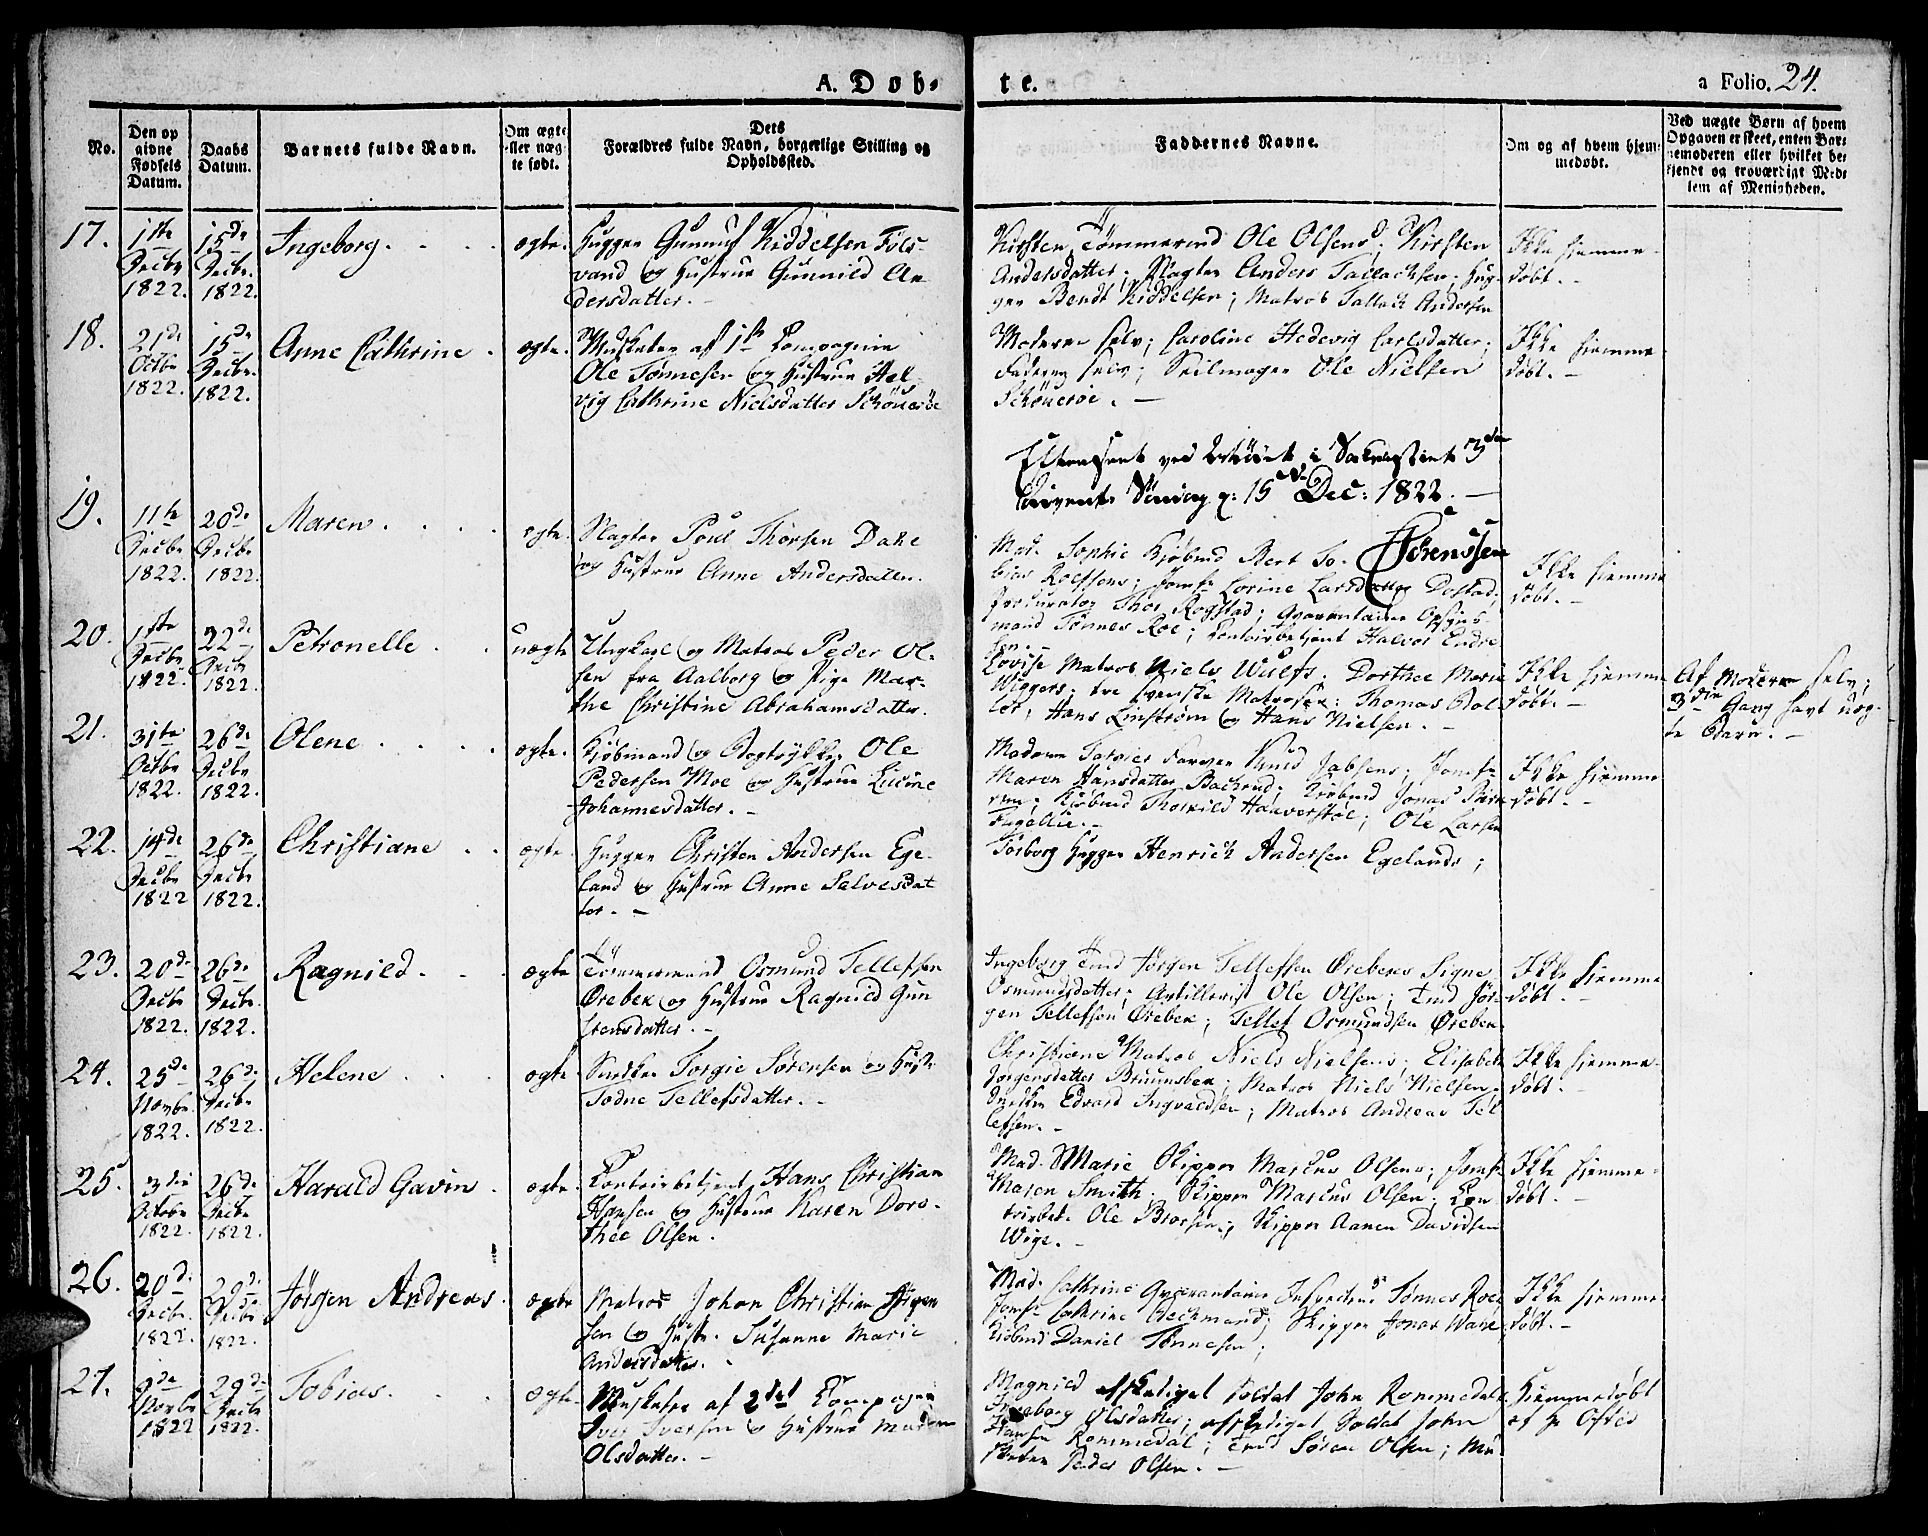 A. Døb-
te.
a Folio. 24.
No.
Den op
givne
Fødsels
Datum.
Daabs
Datum.
Barnets fulde Navn.
Om ægte
eller uæg-
te født.
Dets
Forældres fulde Navn, borgerlige Stilling og
Opholdssted.
Faddernes Navne.
Om og af hvem hjem-
medøbt.
Ved uægte Børn af hvem
Opgaven er skeet, enten Bar-
nemoderen eller hvilket be-
kjendt og troværdigt Med-
lem af Menigheden.
17.
1ste
Decbr
1822.
15de
Decbr.
1822.
Ingeborg.
ægte.
Hugger Gunnuf Kiddelsen Fols-
vand og Hustrue Gunnild An
dersdatter. -
Kirsten Tömmermd Ole Olsens; Kirsten
Andersdatter; Slagter Anders Tallachsen; Hug-
ger Bendt Kiddelsen; Matros Tallach Andersen
Ikke hjemme-
døbt. -
18.
21de
Octbr
1822.
15de
Decbr.
1822.
Anne Cathrine
ægte.
Musketer af 1ste Compagnie
Ole Tønnesen og Hustrue Hel-
vig Cathrine Nielsdatter Schöueröe
Moderen selv; Caroline Hedevig Carlsdatter;
Faderen selv; Seilmager Ole Nielsen
Schöueröe. -
Ikke hjemme
døbt. -
Advents Söndag d: 15de Dec: 1822. -
Sørenssen
19.
11te
Decbr
1822.
20de
Decbr
1822.
Maren
ægte.
Slagter Poul Thorsen Dahe
og Hustrue Anne Andersdatter.
Mad. Sophie Kjøbmd Bert To-
bias Roessens; Jomfr Lorine Larsdatter Dostad;
Procurator Thor Rogstad; Qvarantaine Opsyns-
mand Tønnes Roe; Contoirbetjent Halvor Endre
sen. -
Ikke hjemme
døbt. -
20.
1ste
Decbr
1822.
22de
Decbr
1822.
Petronelle
uægte
Ungkarl og Matros Peder Ol-
sen fra Aalborg og Pige Mar-
the Christine Abrahamsdatter.
Lovise Matros Niels Wulfs; Dorthee Marie
Wiggers; tre svenske Matroser: Thomas Bol-
ter, Hans Linström og Hans Nielsen. -
Ikke hjemme
døbt. -
Af Moderen selv;
3die Gang havt uæg-
te Børn. -
21.
31te
Octbr
1822.
26de
Decbr
1822.
Olene
ægte.
Kjøbmand og Bogtrykker Ole
Pedersen Moe og Hustrue Lucine
Johannesdatter. -
Madame Farver Knud Jabsens; Jomfr
Maren Hansdatter; Kjøbmd Jonas
Kjøbmd Thorkild Haaverstöl; Ole Larsen
Ikke hjemme
døbt. -
22.
14de
Decbr
1822
26de
Decbr
1822.
Christiane
ægte.
Hugger Christen Andersen Ege-
land og Hustrue Anne Salvesdat
ter. -
Torborg Hugger Henrich Andersen Egelands;
23.
20de
Decbr
1822.
26de
Decbr.
1822.
Ragnild.
ægte
Tömmermand Osmund Tellefsen
Ørebek og Hustrue Ragnild Gun
stensdatter. -
Ingeborg Tmd Jörgen Tellefsen Ørebeks; Signe
Osmundsdatter; Artillerist Ole Olsen; Tmd Jör-
gen Tellefsen Ørebek; Tellef Osmundsen Ørebek
Ikke hjemme
døbt. -
24.
25de
Novbr.
1822.
26de
Decbr
1822.
Helene
ægte
Snedker Torgie Sørensen og Hustr
Todne Tellefsdatter. -
Christiane Matros Niels Nielsens; Elisabeth
Jörgensdatter Bruunsbek; Matros Niels Nielsen;
Snedker Edvard Ingvaldsen; Matros Andreas Tel
lefsen. -
Ikke hjemme-
døbt. -
25.
3die
Octobr
1822.
26de
Decbr
1822.
Harald Gavin
ægte.
Contoirbetjent Hans Christian
Hansen og Hustrue Karen Doro-
thee Olsen.
Mad. Marie Skipper Marcus Olsens; Jomfr
Maren Smith; Skipper Marcus Olsen; Con
toirbet. Ole Brorsen; Skipper Aanen Davidsen
Wige. -
Ikke hjemme-
døbt. -
26.
20de
Decbr.
1822.
29de
Decbr
1822.
Jørgen Andreas
ægte
Matros Johan Christian Jörgen
sen og Hustr. Susanne Marie
Andersdatter. -
Mad. Cathrine Qvarantaine Inspecteur Tønnes Roes;
Jomfr Cathrine Beckmand; Skipper Jonas Wahl
Kjøbmd Daniel Tønnesen;
Ikke hjemme-
døbt. -
27.
9de
Novbr
1822
29de
Decbr
1822.
Tobias.
ægte.
Musketer af 2det Compagnie
Iver Iversen og Hustrue Maren
Olsdatter. -
Magnild afskediget Soldat John Rommedals;
Ingeborg Olsdatter; afskediget Soldat John
Hansen Rommedal; Tmd Søren Olsen; Mu-
sketer Peder Olsen. -
Hjemmedøbt
af Hr Ofted